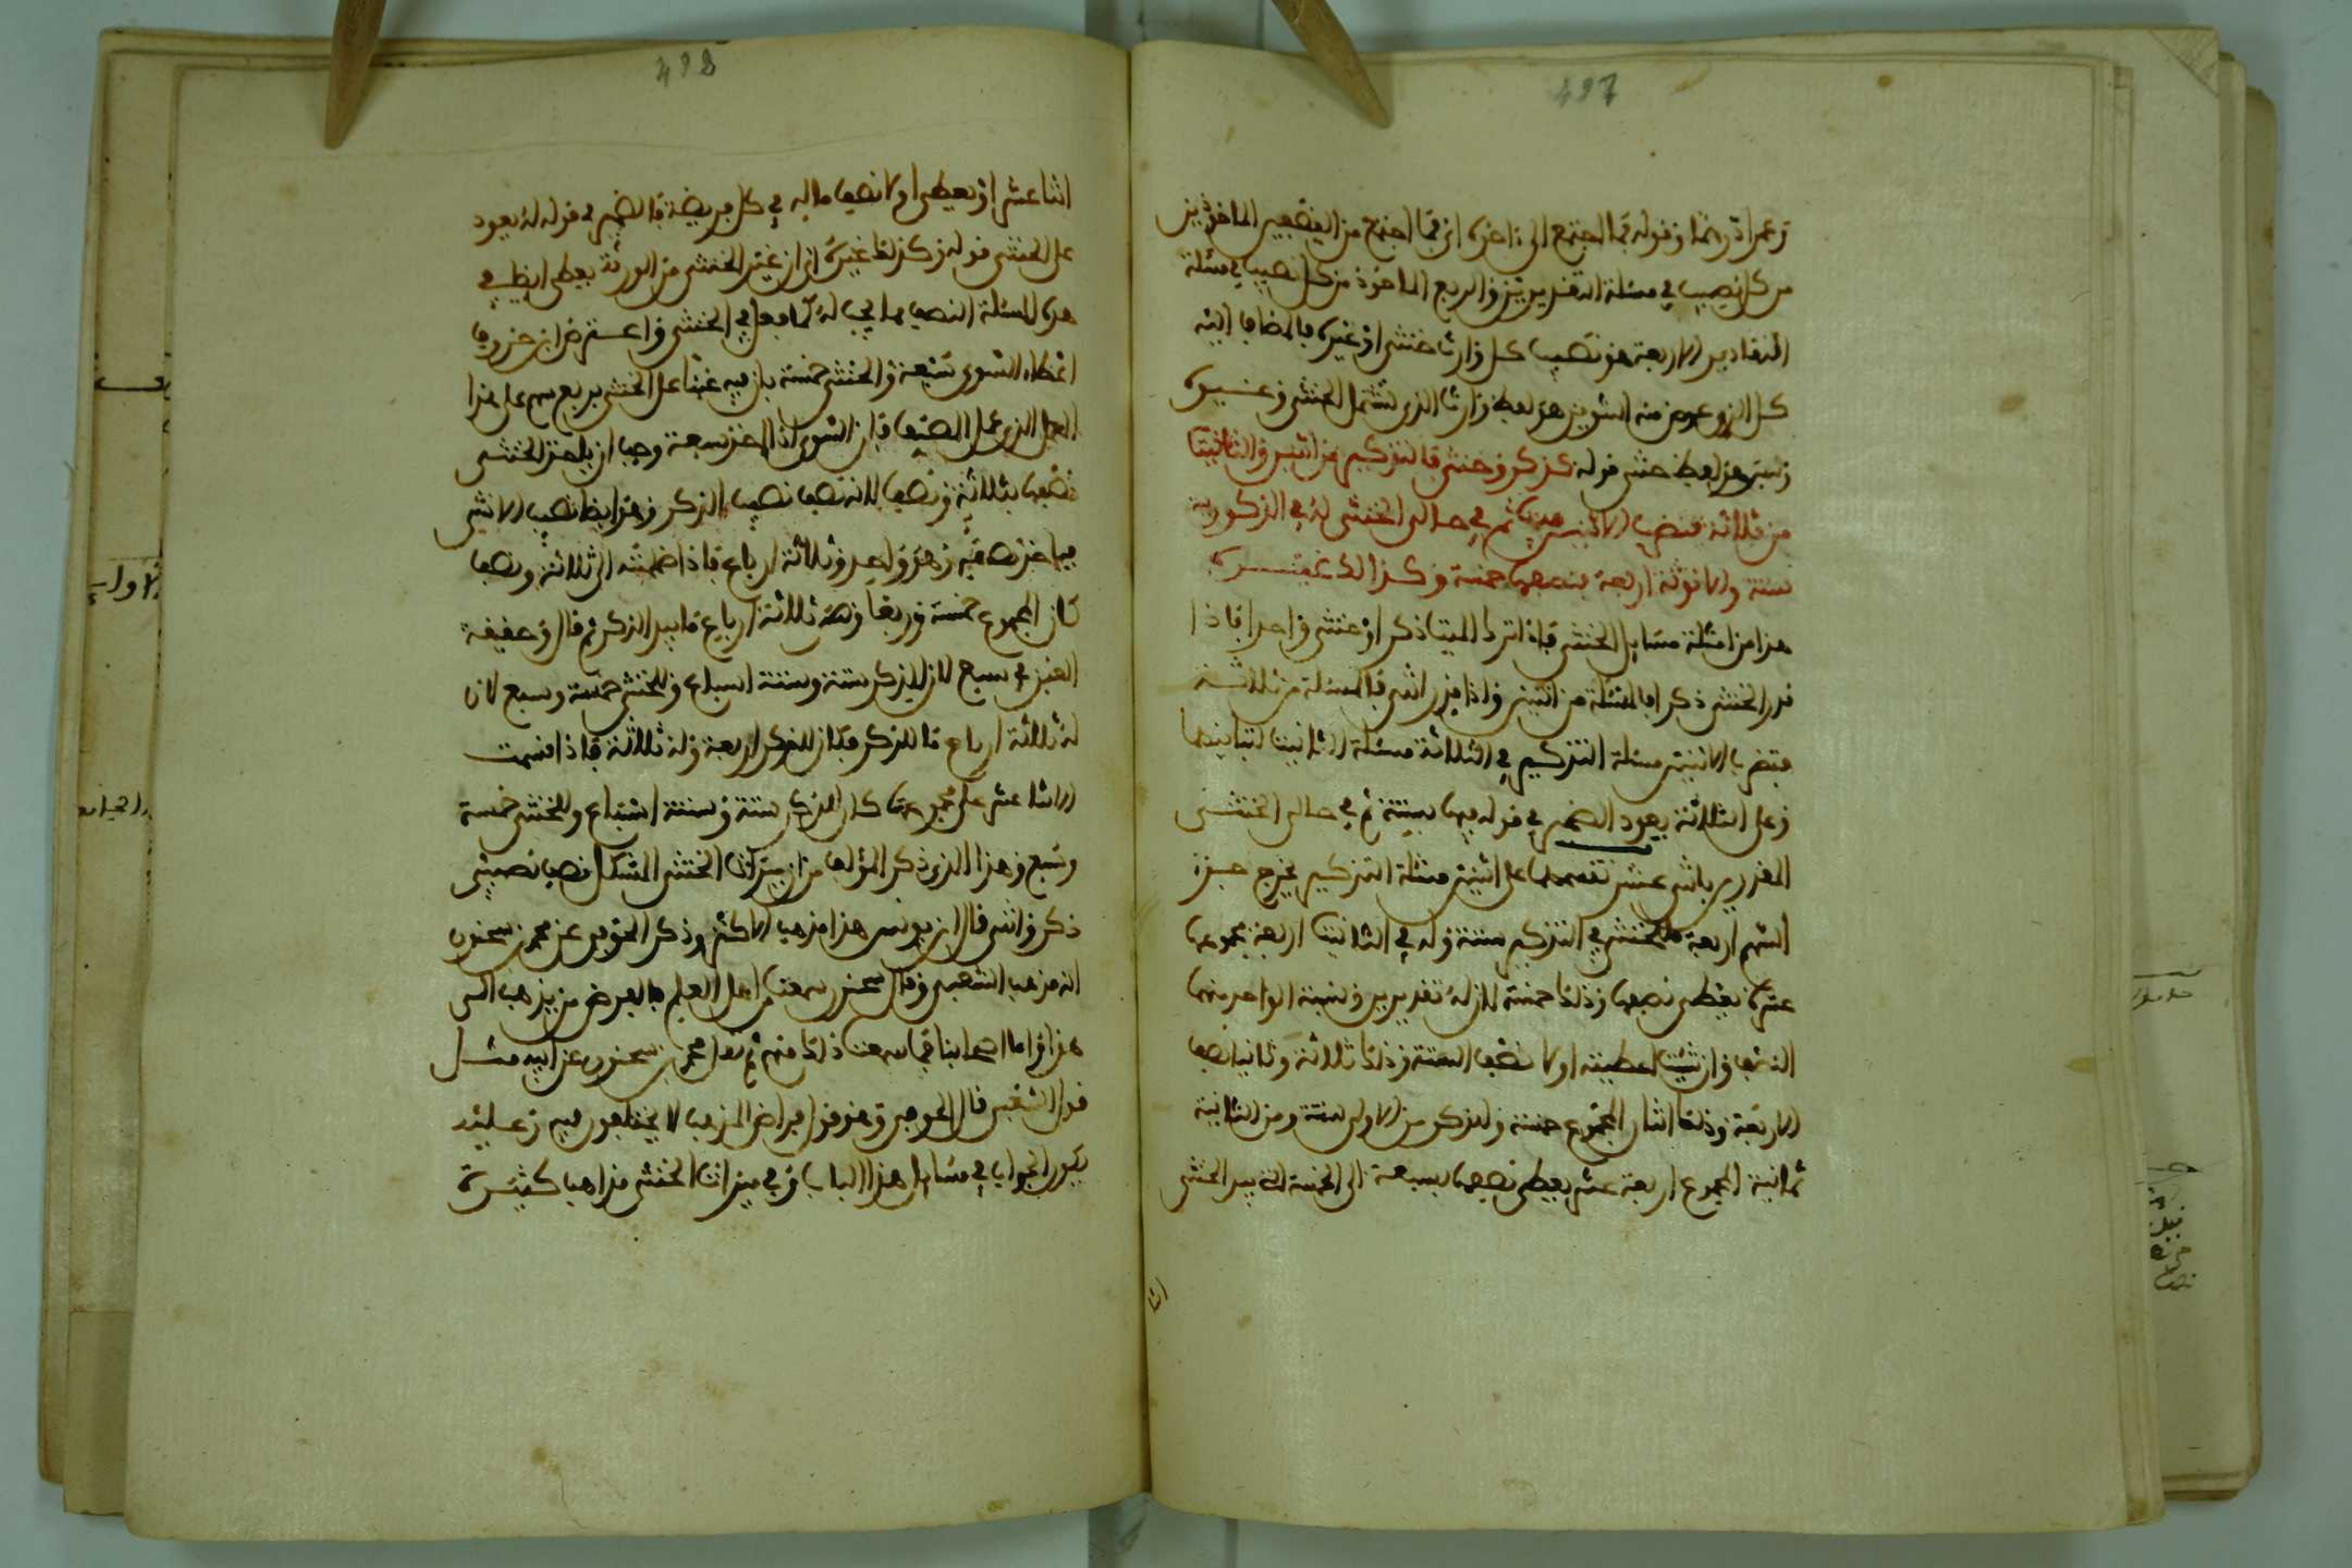 497
وعمرا درهما وقوله فما اجتمع الى ءاخره اي فما اجتمع من النصفين الماخوذين
من كل نصيب في مسئلة التقديرين والربع الماخوذ من كل نصيب في مسئلة
التقادير الاربعة هو نصيب كل وارث خنثى او غيره فالمضاف اليه
كل الذي عوض منه التنوين هو لفظ وارث الذي يشمل الخنثى وغيره
وليس هو لفظ خنثى قوله كذكر وخنثى فالتذكير من اثنين والتانيث
من ثلاثة فتضرب الاثنين فيها ثم في حالي الخنثى له في الذكورية
ستة والانوثة اربعة فنصفها خمسة وكذلك غيره
هذا من امثلة مسايل الخنثى فاذا ترك الميت ذكرا وخنثى واحدا فاذا
قدر الخنثى ذكرا فالمسئلة من اثنين واذا قدر انثى فالمسئلة من ثلاثة
فتضرب الاثنين مسئلة التذكير في الثلاثة مسئلة التانيث لتباينهما
وعلى الثلاثة يعود الضمير في قوله فيها بستة ثم في حالي الخنثى
المقدرين باثني عشر تقسمها على اثنين مسئلة التذكير يخرج جزء
السهم اربعة فللخنثى في التذكير ستة وله في التانيث اربعة مجموعها
عشرة يعطى نصفها وذلك خمسة لان له تقديرين ونسبة الواحد منهما
النصف وان شئت اعطيته اولا نصف الستة وذلك ثلاثة وثانيا نصف
الاربعة وذلك اثنان المجموع خمسة وللذكر من الاولى ستة ومن الثانية
ثمانية المجموع اربعة عشر يعطى نصفها سبعة الى الخمسة التي بيد الخنثى
اثنا
498
اثنا عشر او يعطى اولا نصف ماله في كل فريضة فالضمير في قوله له يعود
على الخنثى قوله وكذلك غيره اي ان غير الخنثى من الورثة يعطى ايضا في
هذه المسئلة النصف مما يجب له كما فعل في الخنثى واعترض ابن خروف
اعطاء السوي سبعة والخنثى خمسة بان فيه غبنا على الخنثى بربع سهم على هذا
العمل الذي عمل المصنف فان السوي اذا اخذ سبعة وجب ان ياخذ الخنثى
نصفها ثلاثة ونصف لانه نصف نصيب الذكر وهو ايضا نصيب الانثى
فياخذ نصفيه وهو واحد وثلاثة ارباع فاذا ضممته الى ثلاثة ونصف
كان المجموع خمسة وربعا وهو ثلاثة ارباع ما بيد الذكر ثم قال وحقيقة
الغبن سبع لان للذكر ستة وستة اسباع وللخنثى خمسة وسبع لان
له ثلاثة ارباع ما للذكر فكان للذكر اربعة وله ثلاثة فاذا قسمت
الاثنا عشر على مجموعها كان للذكر ستة وستة اسباع وللخنثى خمسة
وسبع وهذا الذي ذكر المؤلف من ان ميراث الخنثى المشكل نصف نصيبي
ذكر وانثى قال ابن يونس هذا مذهب الاكثر وذكر الحوفي عن محمد بن سحنون
انه مذهب الشعبي وقال سحنون سمعت اهل العلم بالفرض من يذهب الى
هذا واما اصحابنا فما سمعت ذلك منهم ثم نقل محمد بن سحنون عن ابيه مثل
قول الشعبي قال الحوفي وهو قول فراض المذهب لا يختلفون فيه وعليه
يكون الجواب في مسايل هذا الباب وفي ميراث الخنثى مذاهب كثيرة